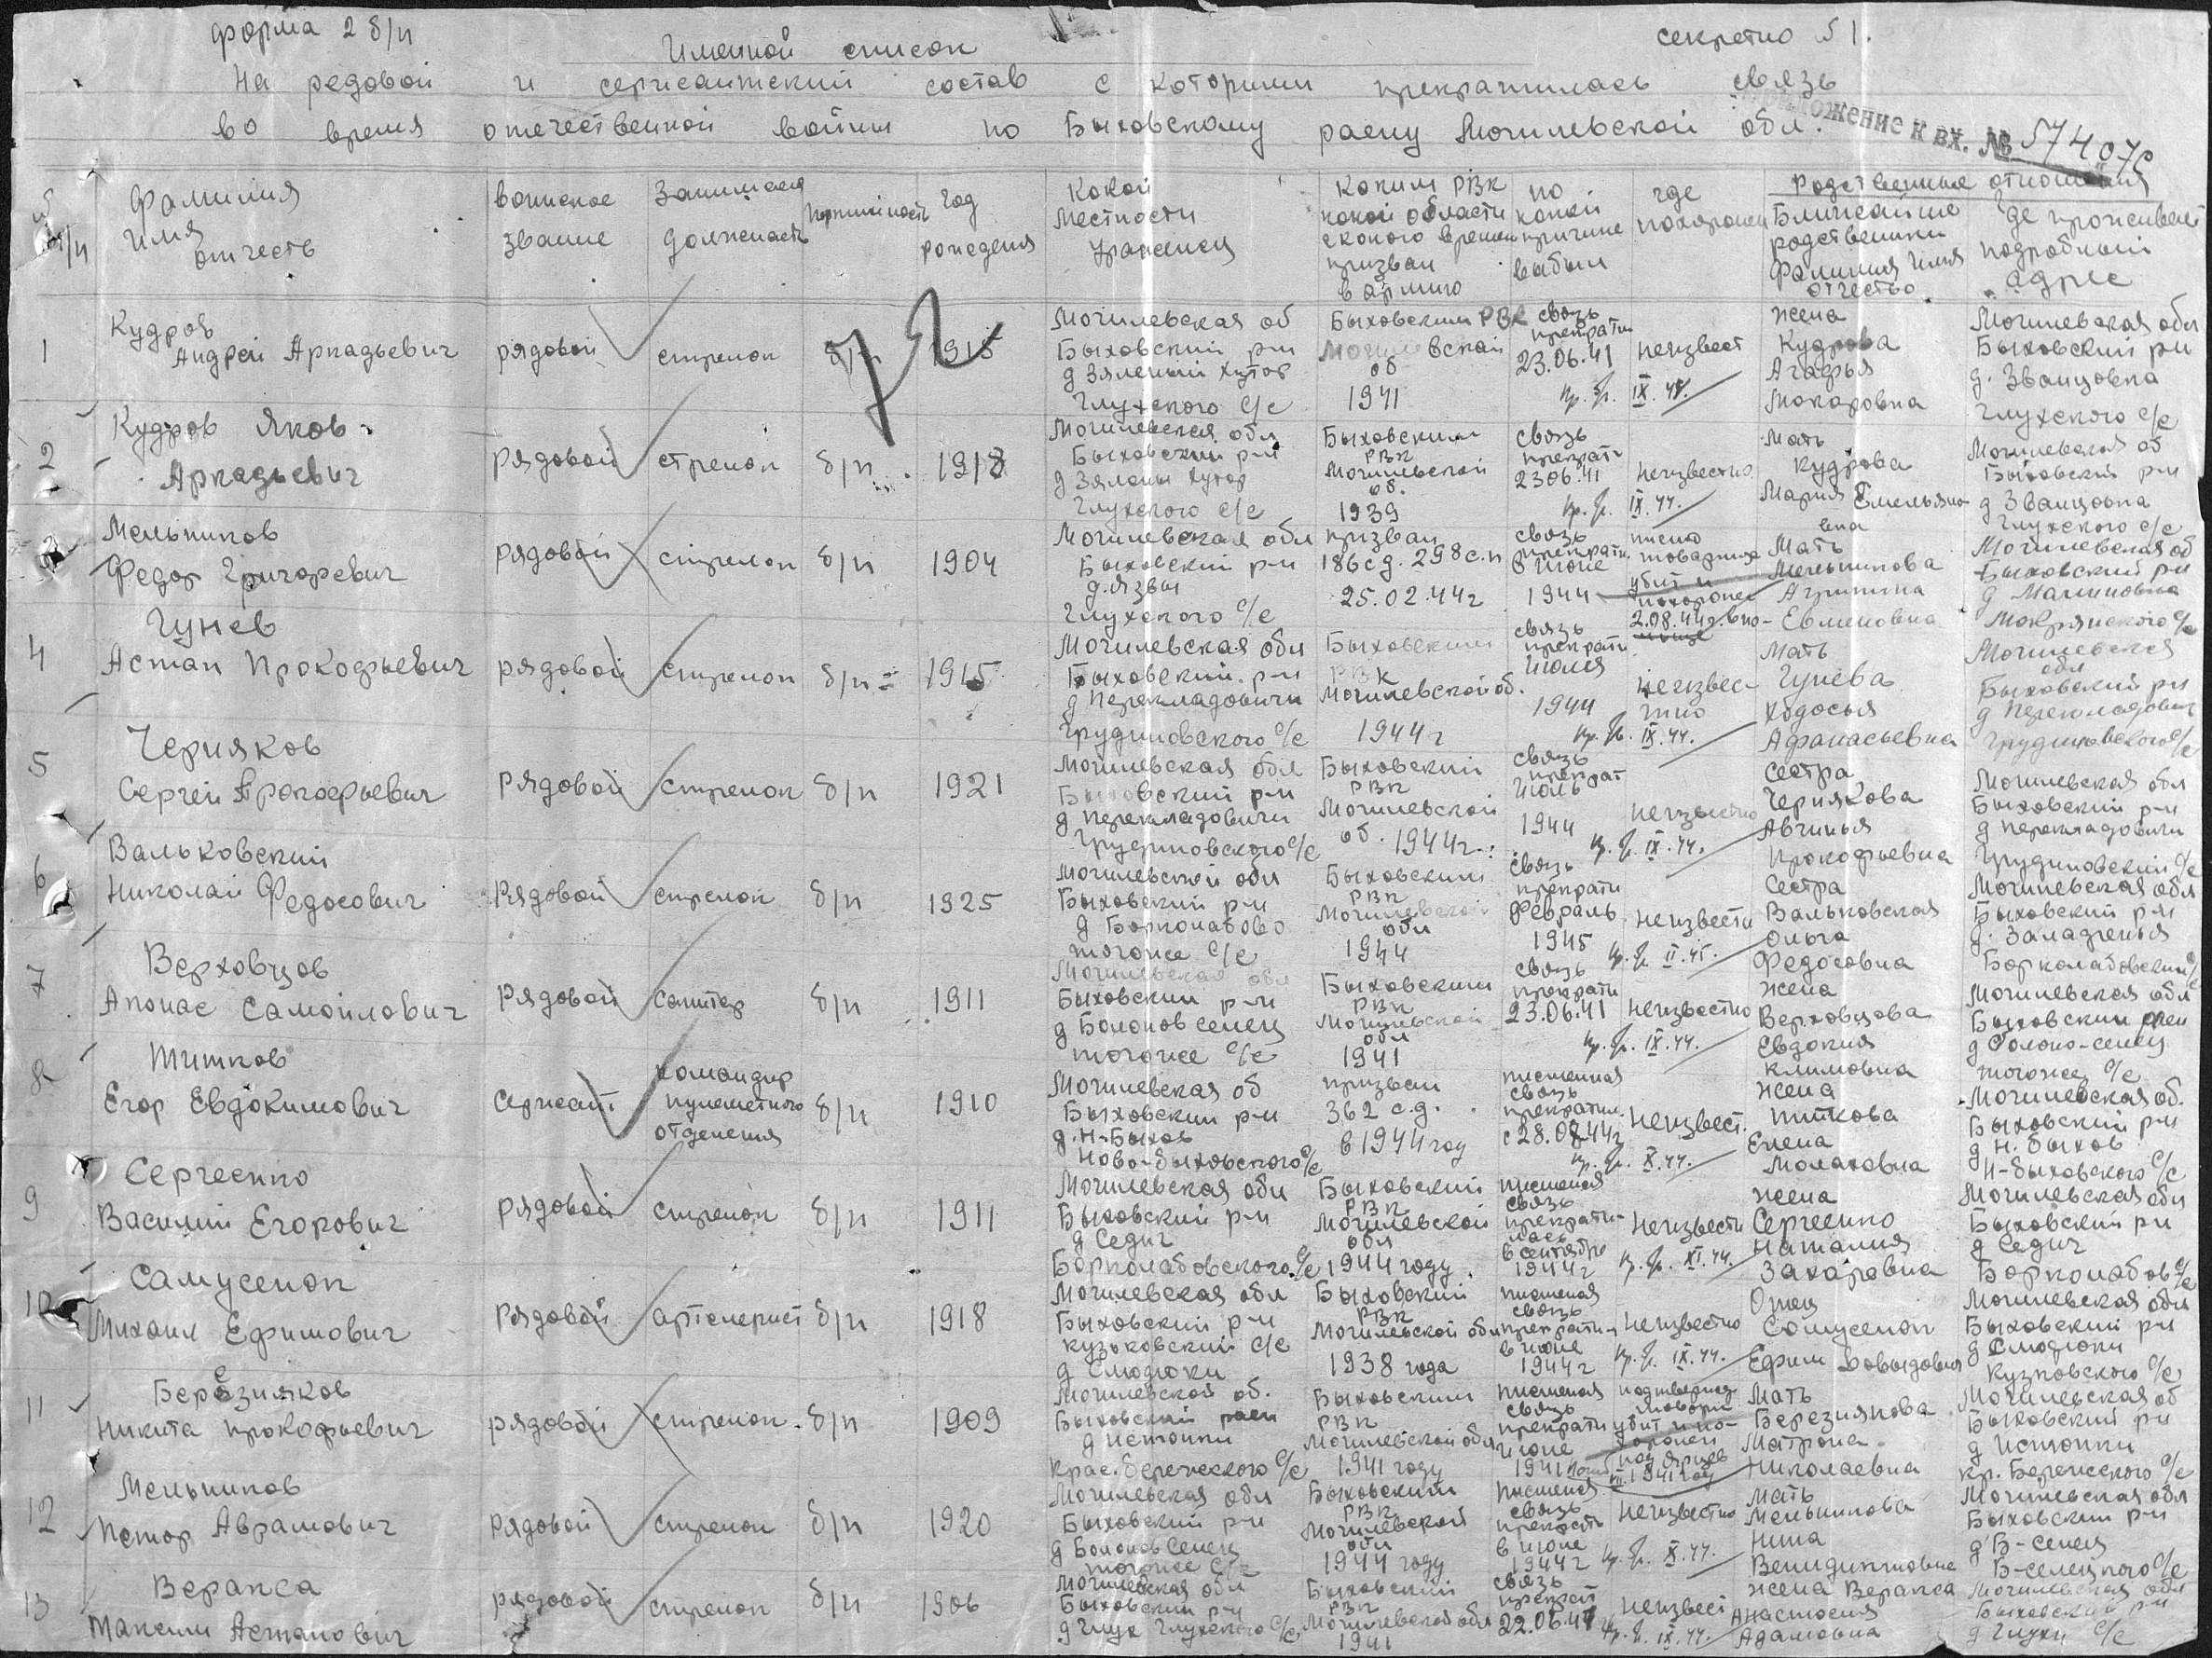 форма 2 б/п
секретно 51.
Именной список
На редовой и сержсантский состав с которыми прекратилась связь
во время отечественной войны по Быховскому раену Могилевской обл.
ожение к вх. № 57407с
п/п
Фамилия имя отчесть
воинское звание
Занимаем должность
Партийность
год рождения
Какой местности урженец
Каким РВК какой области с какого время призван в армию
по какой причине выбыл
где похоронен
Родственные отношения
Ближайшие родственики Фамилия Имя отчество
Где проживает подробный адрес
72
1
Кудров Андрей Аркадьевич
рядовой
стрелок
б/п
1915
Могилевская об Быховский р-н д Зяленый Хутор Глухского с/с
Быховским РВК Могилевской об 1941
связь прекрати 23.06.41
неизвест
пр. б. IX.44.
жена Кудрова Агафья Макаровна
Могилевская обл Быховский р-н д. Званцовка Глухского с/с
2
Кудров Яков Аркадьевич
рядовой
стрелок
б/п
1918
Могилевская обл Быховский р-н д Зяленый Хутор Глухского с/с
Быховским РВК Могилевской об. 1939
связь прекрати 23 06.41
неизвестно
пр. б. IX.44.
мать Кудрова Мария Емельяновна
Могилевская об Быховский р-н д Званцовка Глухского с/с
3
Мельников Федор Григоревич
рядовой
стрелок
б/п
1904
Могилевская обл Быховский р-н д. Язвы Глухского с/с
призван 186 с д. 298 с.п 25.02.44г
связь прекрати в июне 1944
письмо товарища убит и похоронен 2.08.44г. в по-
Мать Мельникова Агрипина Евменовна
Могилевская об Быховский р-н д Малиновка Мокрянского с/с
4
Гунев Астап Прокофьевич
рядовой
стрелок
б/п
1915
Могилевская обл Быховский р-н д Перекладовичи Грудиновского с/с
Быховским РВК Могилевской об. 1944 г
связь прекрати Июля 1944
неизвестно
пр. б. IX.44.
мать Гунева Ходосья Афанасьевна
Могилевская обл Быховский р-н д Перекладович Грудиновского с/с
5
Черняков Сергей Прокофьевич
рядовой
стрелок
б/п
1921
Могилевская обл Быховский р-н д Перекладовичи Грудиновского с/с
Быховский РВК Могилевской об. 1944г.
связь прекрат Июль 1944
неизвестно
пр. б. IX.44.
сестра Чернякова Авгинья Прокофьевна
Могилевская обл Быховский р-н д Перекладовичи Грудиновский с/с
6
Вальковский Николай Федосович
Рядовой
стрелок
б/п
1925
Могилевской обл Быховский р-н д Борколабово тогоже с/с
Быховским РВК Могилевской обл 1944
связь прекрати Февраль 1945
неизвестн
пр. б. II.45.
сестра Вальковская Ольга Федосовна
Могилевская обл Быховский р-н д. Заладженья Борколабовский с/с
7
Верховцов Апонас Самойлович
Рядовой
санитар
б/п
1911
Могилевская обл Быховский р-н д Болонов Селец тогоже с/с
Быховским РВК Могилевской обл 1941
связь прекрати 23.06.41
неизвестно
пр. б. IX.44.
жена Верховцова Евдокия Климовна
Могилевская обл Быховский раен д Болоно-селец тогоже с/с
8
Титков Егор Евдокимович
Сержсант
командир пулеметного отделения
б/п
1910
Могилевская об Быховский р-н д. Н-Быхов Ново-быховского с/с
призван 362 с.д. в 1944 год
писменная связь прекратил. с 28.08.44г
неизвест.
пр. б. X.44.
жена Титкова Елена Малаховна
Могилевская об. Быховский р-н д Н. Быхов Н-быховского с/с
9
Сергеенко Василий Егорович
рядовой
стрелок
б/п
1911
Могилевская обл Быховский р-н д Седич Борколабовского с/с
Быховский РВК Могилевской обл 1944 году
писменая связь прекратилась в сентябре 1944г
неизвестн
пр. б. XI.44.
жена Сергеенко Наталия Захаровна
Могилевская обл Быховский р-н д Седич Борколабов с/с
10
Самусенок Михаил Ефимович
Рядовой
артелерист
б/п
1918
Могилевская обл Быховский р-н Кузьковский с/с д Слюдюки
Быховский РВК Могилевской обл 1938 года
писменая связь прекрати в июне 1944г
неизвестно
пр. б. IX.44.
Отец Самусенок Ефим Довыдович
Могилевская обл Быховский р-н д Слюдюки Кузьковского с/с
11
Березняков Никита Прокофьевич
рядовой
стрелок
б/п
1909
Могилевской об. Быховский раен д Истопки Крас. бережского с/с
Быховским РВК Могилевской обл 1941 году
писменая связь прекрати Июле 1941
подтвержд товарищ убит и похоронен под Ярцев VII.1941год
Мать Березнякова Матрона Николаевна
Могилевская об Быховский р-н д Истопки Кр. Бережского с/с
12
Мельников Петор Аврамович
рядовой
стрелок
б/п
1920
Могилевская обл Быховский р-н д Болонов Селец тогоже с/с
Быховским РВК Могилевской обл 1944 году
писменая связь прекрать в июне 1944г
неизвестно
пр. б. X.44.
мать Мельникова Нина Венидиктовне
Могилевская обл Быховский р-н д Б-селец Б-селецкого с/с
13
Веракса Максим Астапович
рядовой
стрелок
б/п
1906
Могилевская обл Быховский р-н д Глухи Глухского с/с
Быховский РВК Могилевской обл 1941
связь прекрат 22.06.41
неизвест
пр. б. IX.44.
жена Веракса Анастосия Адамовна
Могилевская обл Быховский р-н д Глухи с/с